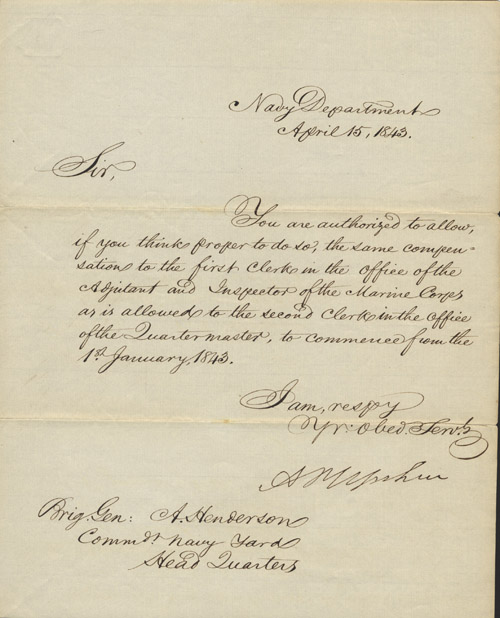 Navy Department
April 15, 1843.
Sir,
You are authorized to allow,
if you think proper to do so, the same compen=
sation to the first Clerk in the office of the
Adjutant and Inspector of the Marine Corps
as is allowed to the second Clerk in the office
of the Quartermaster, to commence from the
1st January, 1843.
I am, respy
Yr: Obed. Servt
A P Upshur
Brig. Gen: A. Henderson
Commdt Navy Yard
Head Quarters